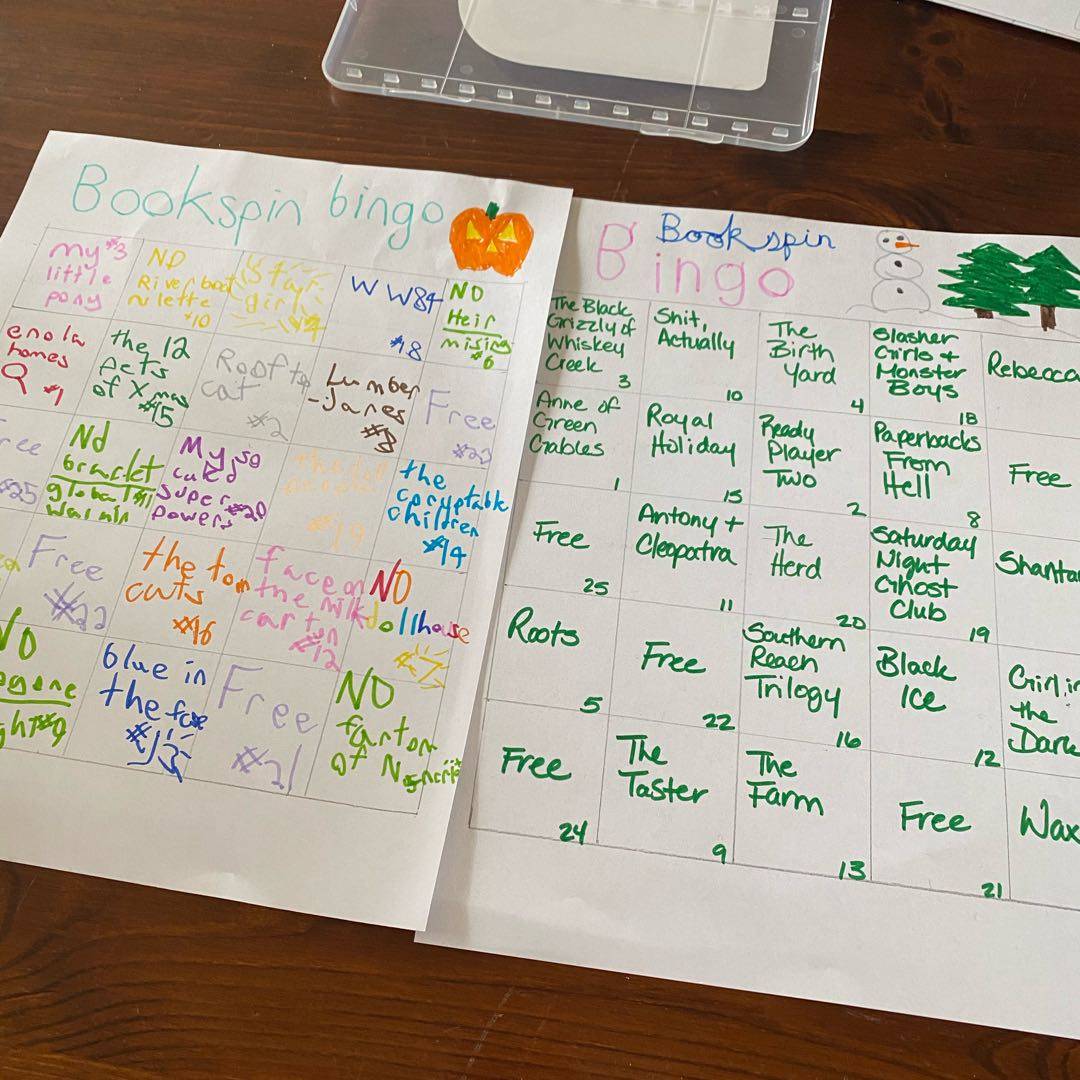 Bookspin bingo
my #3
little
pony
ND
River boat
rulette
#10
Star
girl
#4
WW84
#18
ND
Heir
missing
#6
enola
homes
#1
the 12
Pets
of Xmas
#15
Rooftop
cat
#2
Lumber
-Janes
#8
Free
#23
ree
#25
Nd
braclet
global #11
warmin
My so
caled
super #20
powers
the doll
#19
the
coryptable
children
#14
Free
#22
the tom
cats
#16
face on
the milk
carton
#12
ND
dollhouse
#7
#9
blue in
the face
#13
Free
#21
ND
fantom
of
Bookspin
Bingo
The Black
Grizzly of
Whiskey
Creek
3
Shit,
Actually
10
The
Birth
Yard
4
Slasher
Girls +
Monster
Boys
18
Rebecca
Anne of
Green
Gables
1
Royal
Holiday
15
Ready
Player
Two
2
Paperbacks
From
Hell
8
Free
Free
25
Antony +
Cleopatra
11
The
Herd
20
Saturday
Night
Ghost
Club
19
Shantar
Roots
5
Free
22
Southern
Reach
Trilogy
16
Black
Ice
12
Girl in
the
Dark
Free
24
The
Taster
9
The
Farm
13
Free
21
Wax